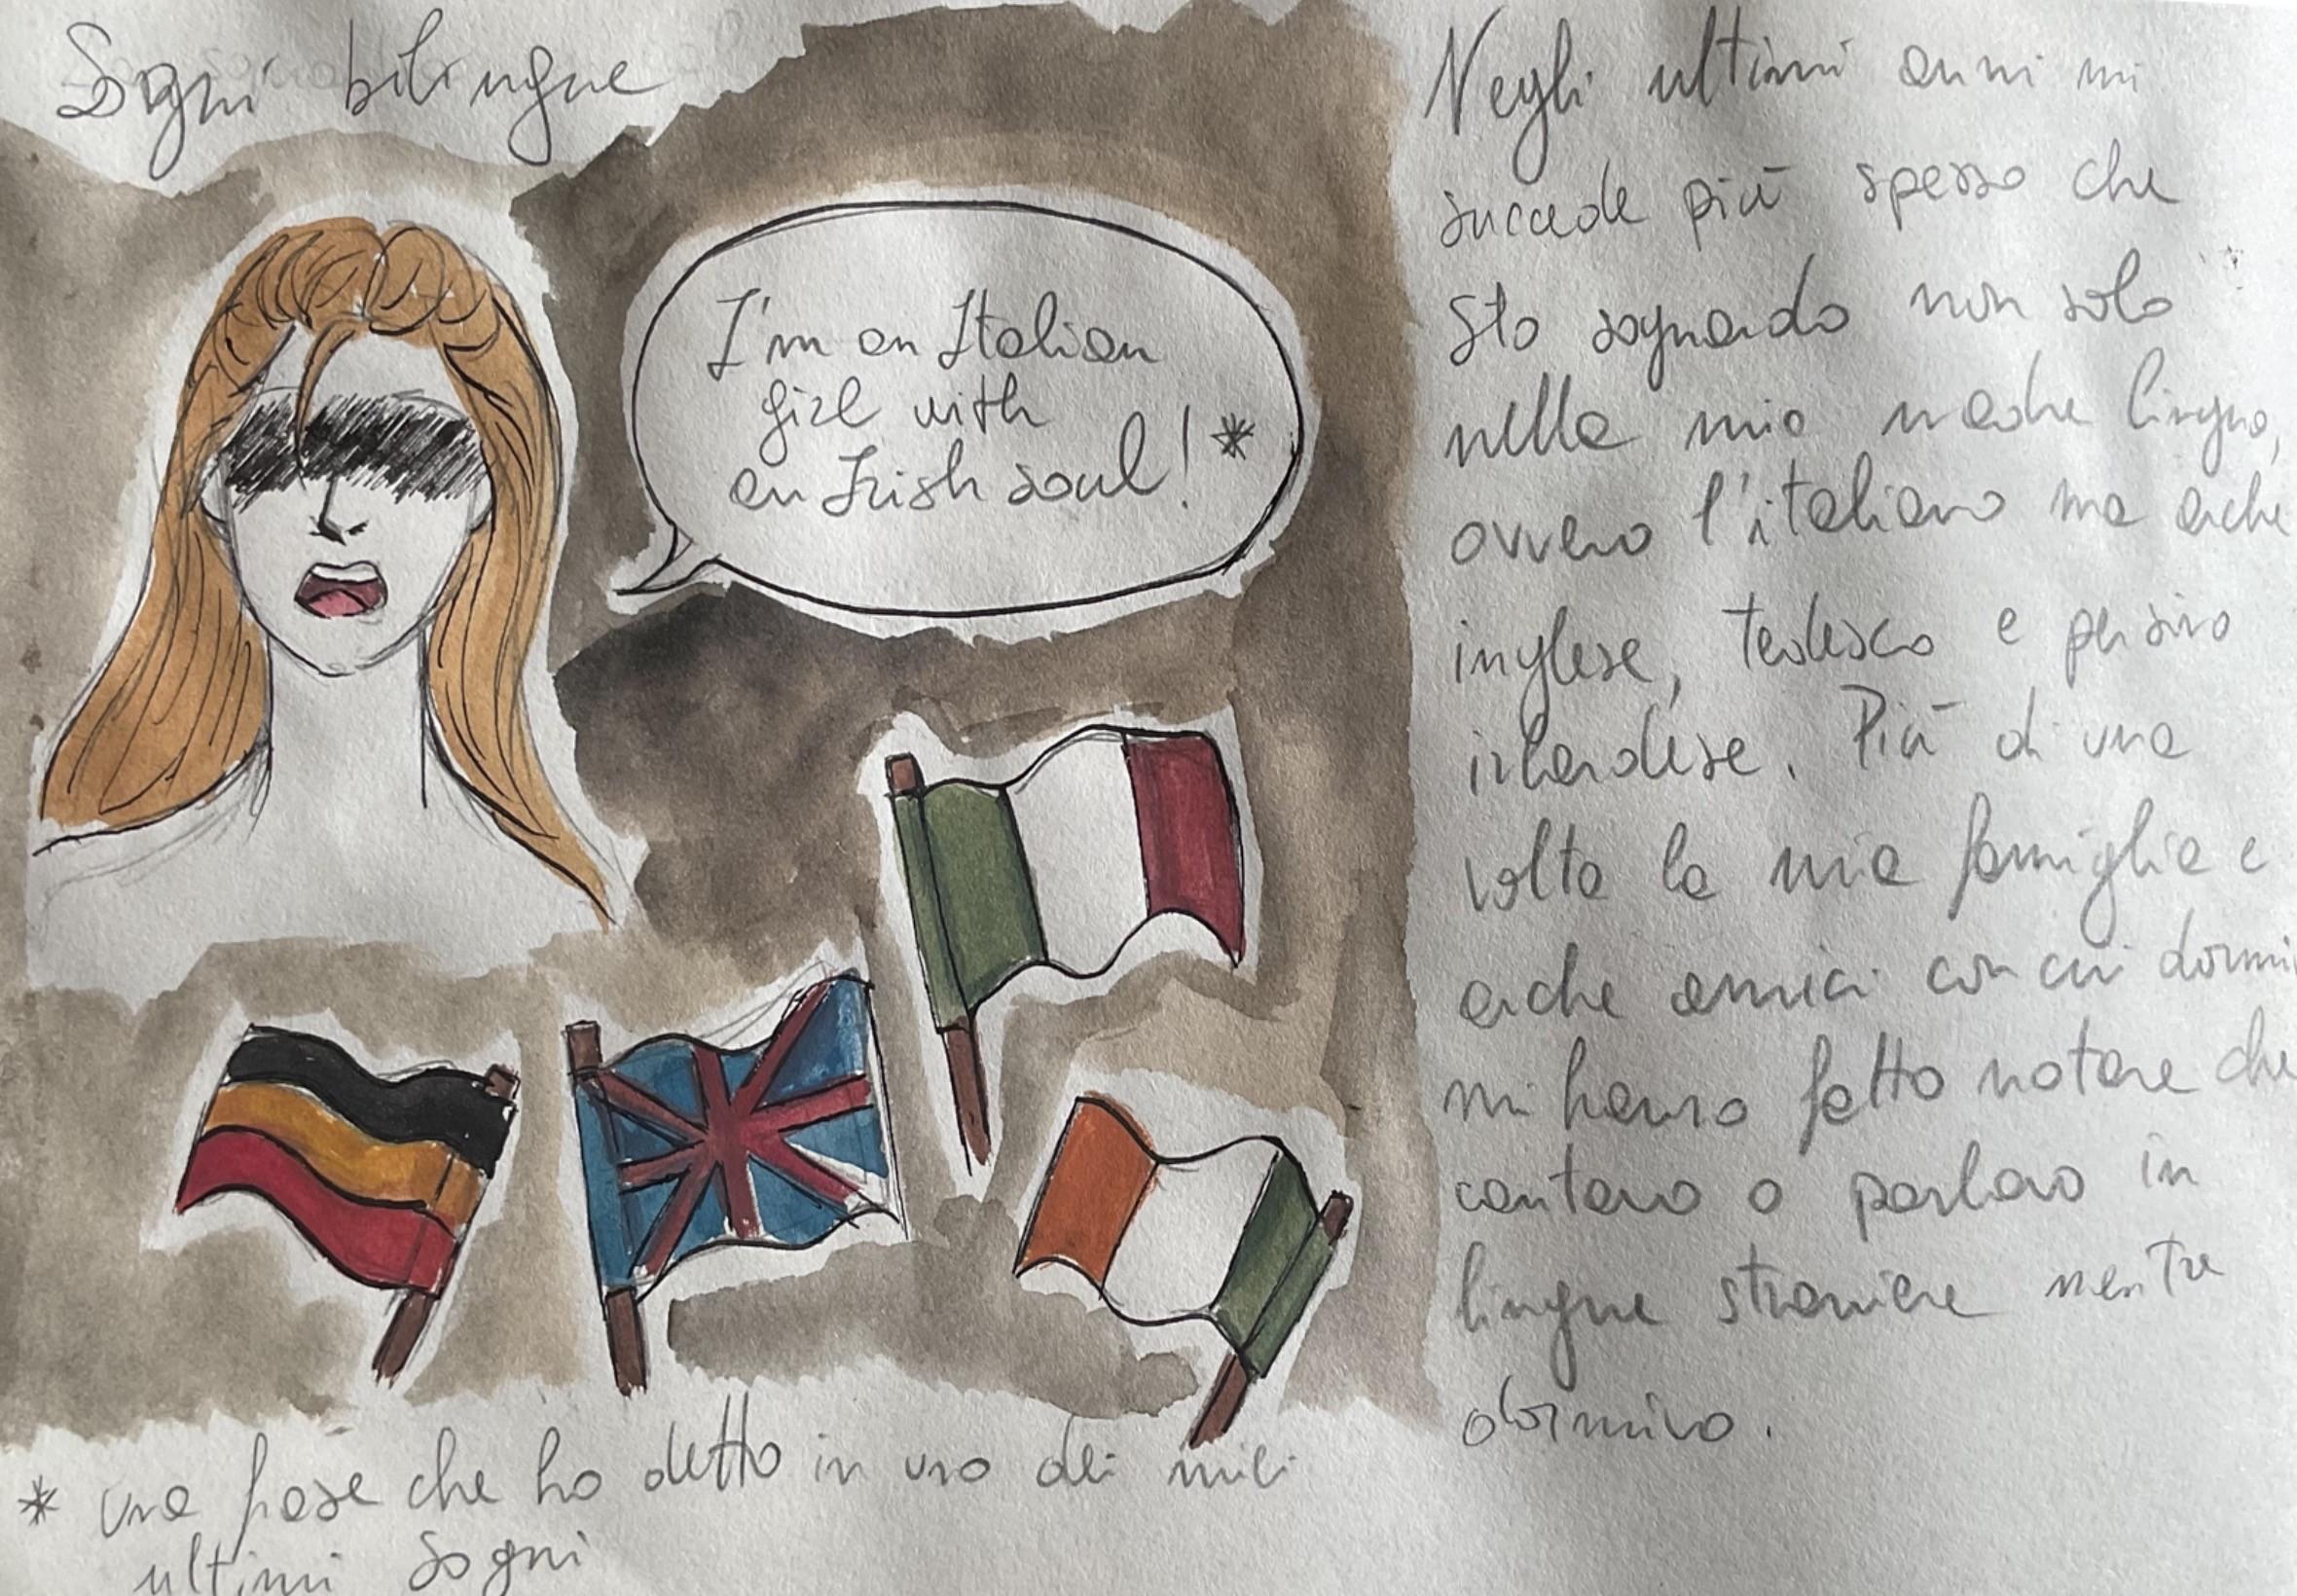 Sogni bilingue
I'm an Italian
girl with
an Irish soul! *
* una frase che ho detto in uno dei miei
ultimi sogni
Negli ultimi anni mi
succede più spesso che
sto sognando non solo
nella mia madre lingua,
ovvero l'italiano ma anche
inglese, tedesco e persino
irlandese. Più di una
volta la mia famiglia e
anche amici con cui dormi
mi hanno fatto notare che
cantavo o parlavo in
lingue straniere mentre
dormivo.